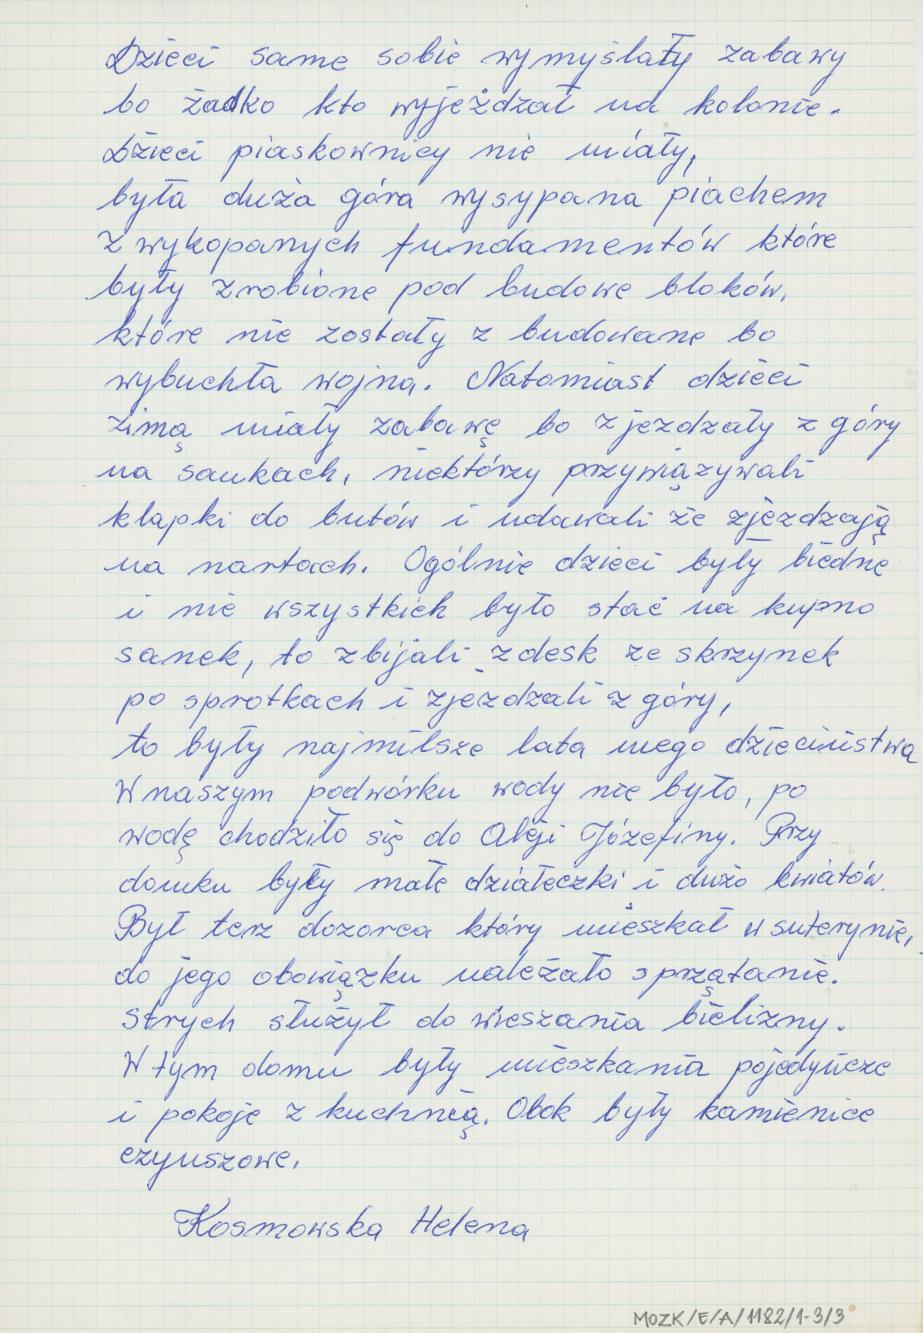 Dzieci same sobie wymyślały zabawy
bo żadko kto wyjeżdzał na kolonie.
Dzieci piaskownicy nie miały,
była duża góra wysypana piachem
z wykopanych fundamentów które
były zrobione pod budowe bloków,
które nie zostały z budowane bo
wybuchła wojna. Natomiast dzieci
zimą miały zabawę bo zjezdzały z góry
na sankach, niektórzy przywiązywali
klapki do butów i udawali że zjezdzają
na nartach. Ogólnie dzieci były biedne
i nie wszystkich było stać na kupno
sanek, to zbijali z desk ze skrzynek
po sprotkach i zjeżdzali z góry,
to były najmilsze lata mego dzieciństwa
W naszym podwórku wody nie było, po
wodę chodziło się do Aleji Józefiny. Przy
domku były małe działeczki i dużo kwiatów.
Był terz dozorca który mieszkał w suterynie,
do jego obowiązku należało sprzątanie.
Strych służył do wieszania bielizny.
W tym domu były mieszkania pojedyńcze
i pokoje z kuchnią. Obok były kamienice
czynszowe.
Kosmowska Helena
MOZK/E/A/1182/1-3/3